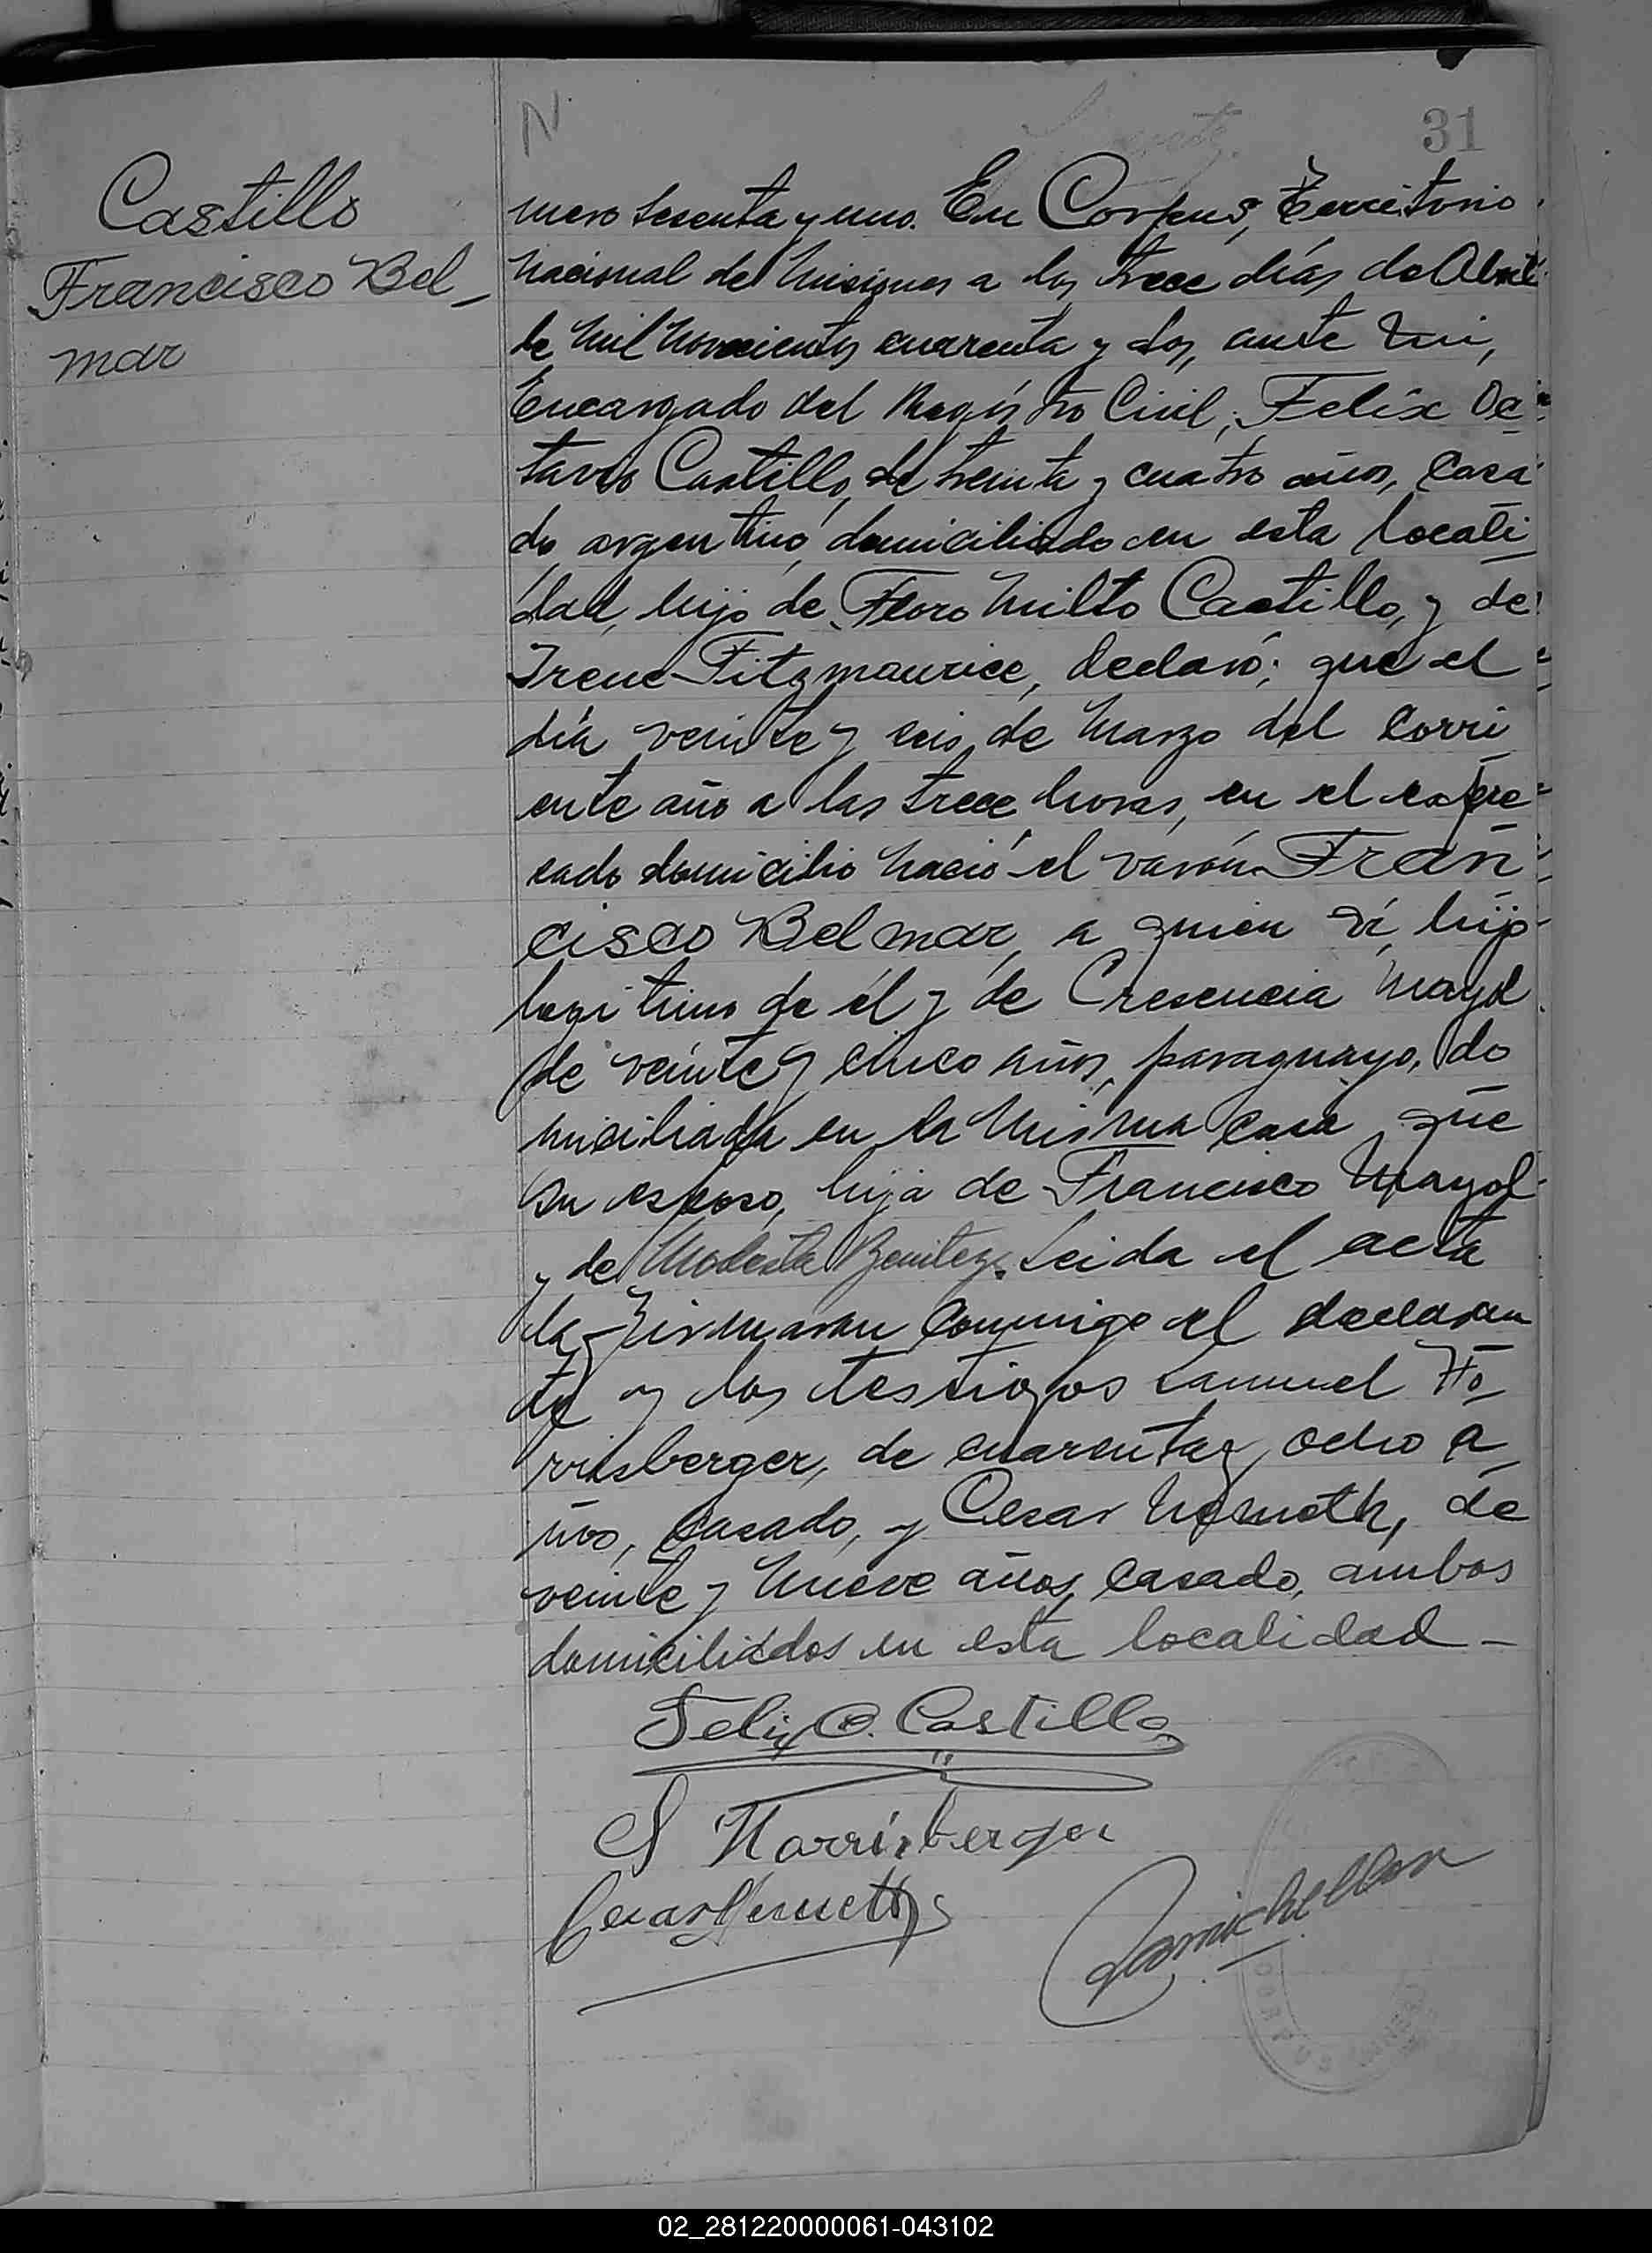 31
N.
Castillo
Francisco Bel-
mar
mero sesenta y uno. En Corpus, Territorio
Nacional de Misiones a los trece días de Abril
de mil novecientos cuarenta y dos, ante mi,
Encargado del Registro Civil, Felix Oc-
tavio Castillo, de treinta y cuatro años, casa-
do, argentino, domiciliado en esta locali-
dad, hijo de Floro Milto Castillo, y de
Irene Fitzmaurice, declaró; que el
día veinte y seis de Marzo del corri-
ente año a las trece horas, en el expre-
sado domicilio nació el varón Fran-
cisco Belmar, a quien ví, hijo
legitimo de él y de Cresencia Mayol
de veinte y cinco años, paraguaya, do-
miciliada en la misma casa que
su esposo, hija de Francisco Mayol
y de Modesta Benitez. Leida el acta
la firmaron conmigo el declaran-
te y los testigos Samuel Ho-
rrisberger, de cuarenta y ocho a-
ños, casado, y Cesar Nemeth, de
veinte y nueve años, casado, ambos
domiciliados en esta localidad-
Felix O. Castillo
S Horrisberger
Cesar Nemeth
CORPUS
02_281220000061-043102